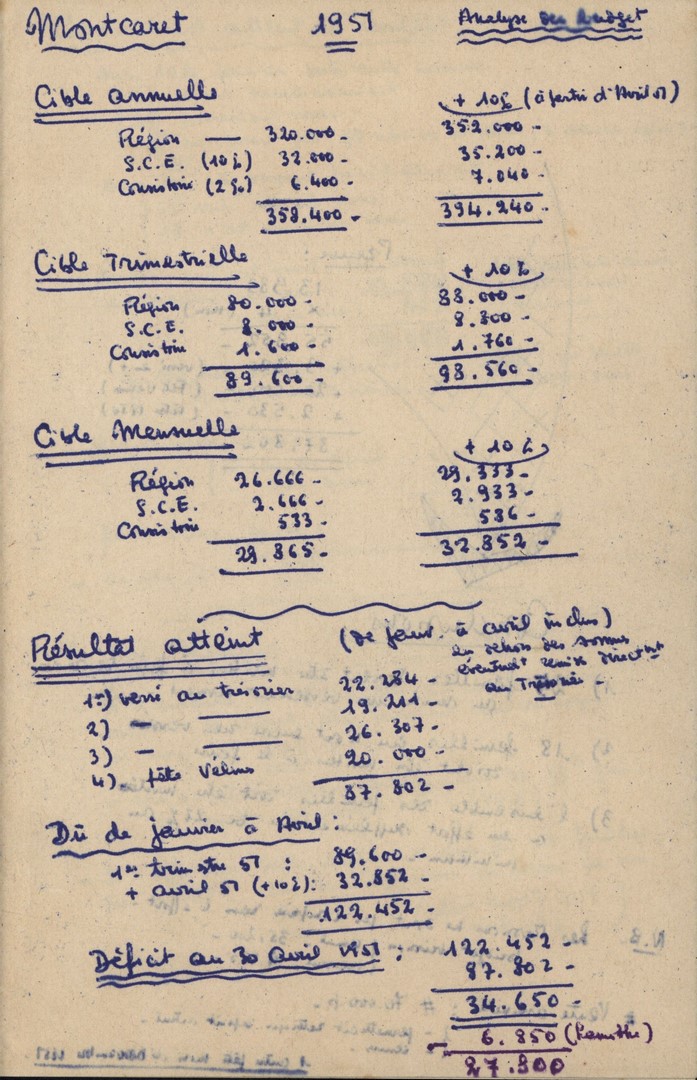 Montcaret 1951 Analyse du budget
Cible annuelle + 10% (à partir d'Avril 51)
Région — 320.000 - 352.000 -
S.C.E. (10%) 32.000 - 35.200 -
Consistoire (2%) 6.400 - 7.040 -
358.400 - 394.240 -
Cible Trimestrielle + 10%
Région 80.000 - 88.000 -
S.C.E. 8.000 - 8.800 -
Consistoire 1.600 - 1.760 -
89.600 - 98.560 -
Cible Mensuelle + 10%
Région 26.666 - 29.333 -
S.C.E. 2.666 - 2.933 -
Consistoire 533 - 586 -
29.865 - 32.852 -
Résultat atteint (de janv. à avril inclus)
en dehors des sommes
éventuelt remises directemt
au Trésorier
1°) versé au trésorier 22.284 -
2) — — 19.211 -
3) — — 26.307 -
4) fête Vélines 20.000 -
87.802 -
Dû de janvier à Avril :
1er trimestre 51 : 89.600 -
+ avril 51 (+10%) : 32.852 -
122.452 -
Déficit au 30 avril 1951 : 122.452 -
87.802 -
34.650 -
- 6.850 (Lamothe)
27.800